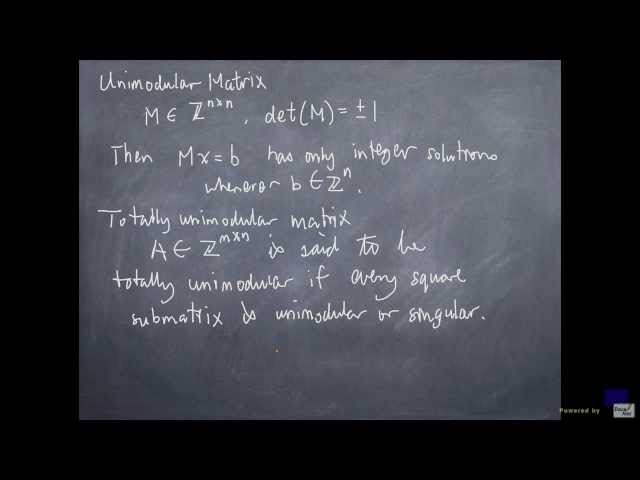 Unimodular Matrix
M ∈ ℤⁿˣⁿ, det(M) = ± 1
Then Mx = b has only integer solutions
whenever b ∈ ℤⁿ.
Totally unimodular matrix
A ∈ ℤᵐˣⁿ is said to be
totally unimodular if every square
submatrix is unimodular or singular.
Powered by